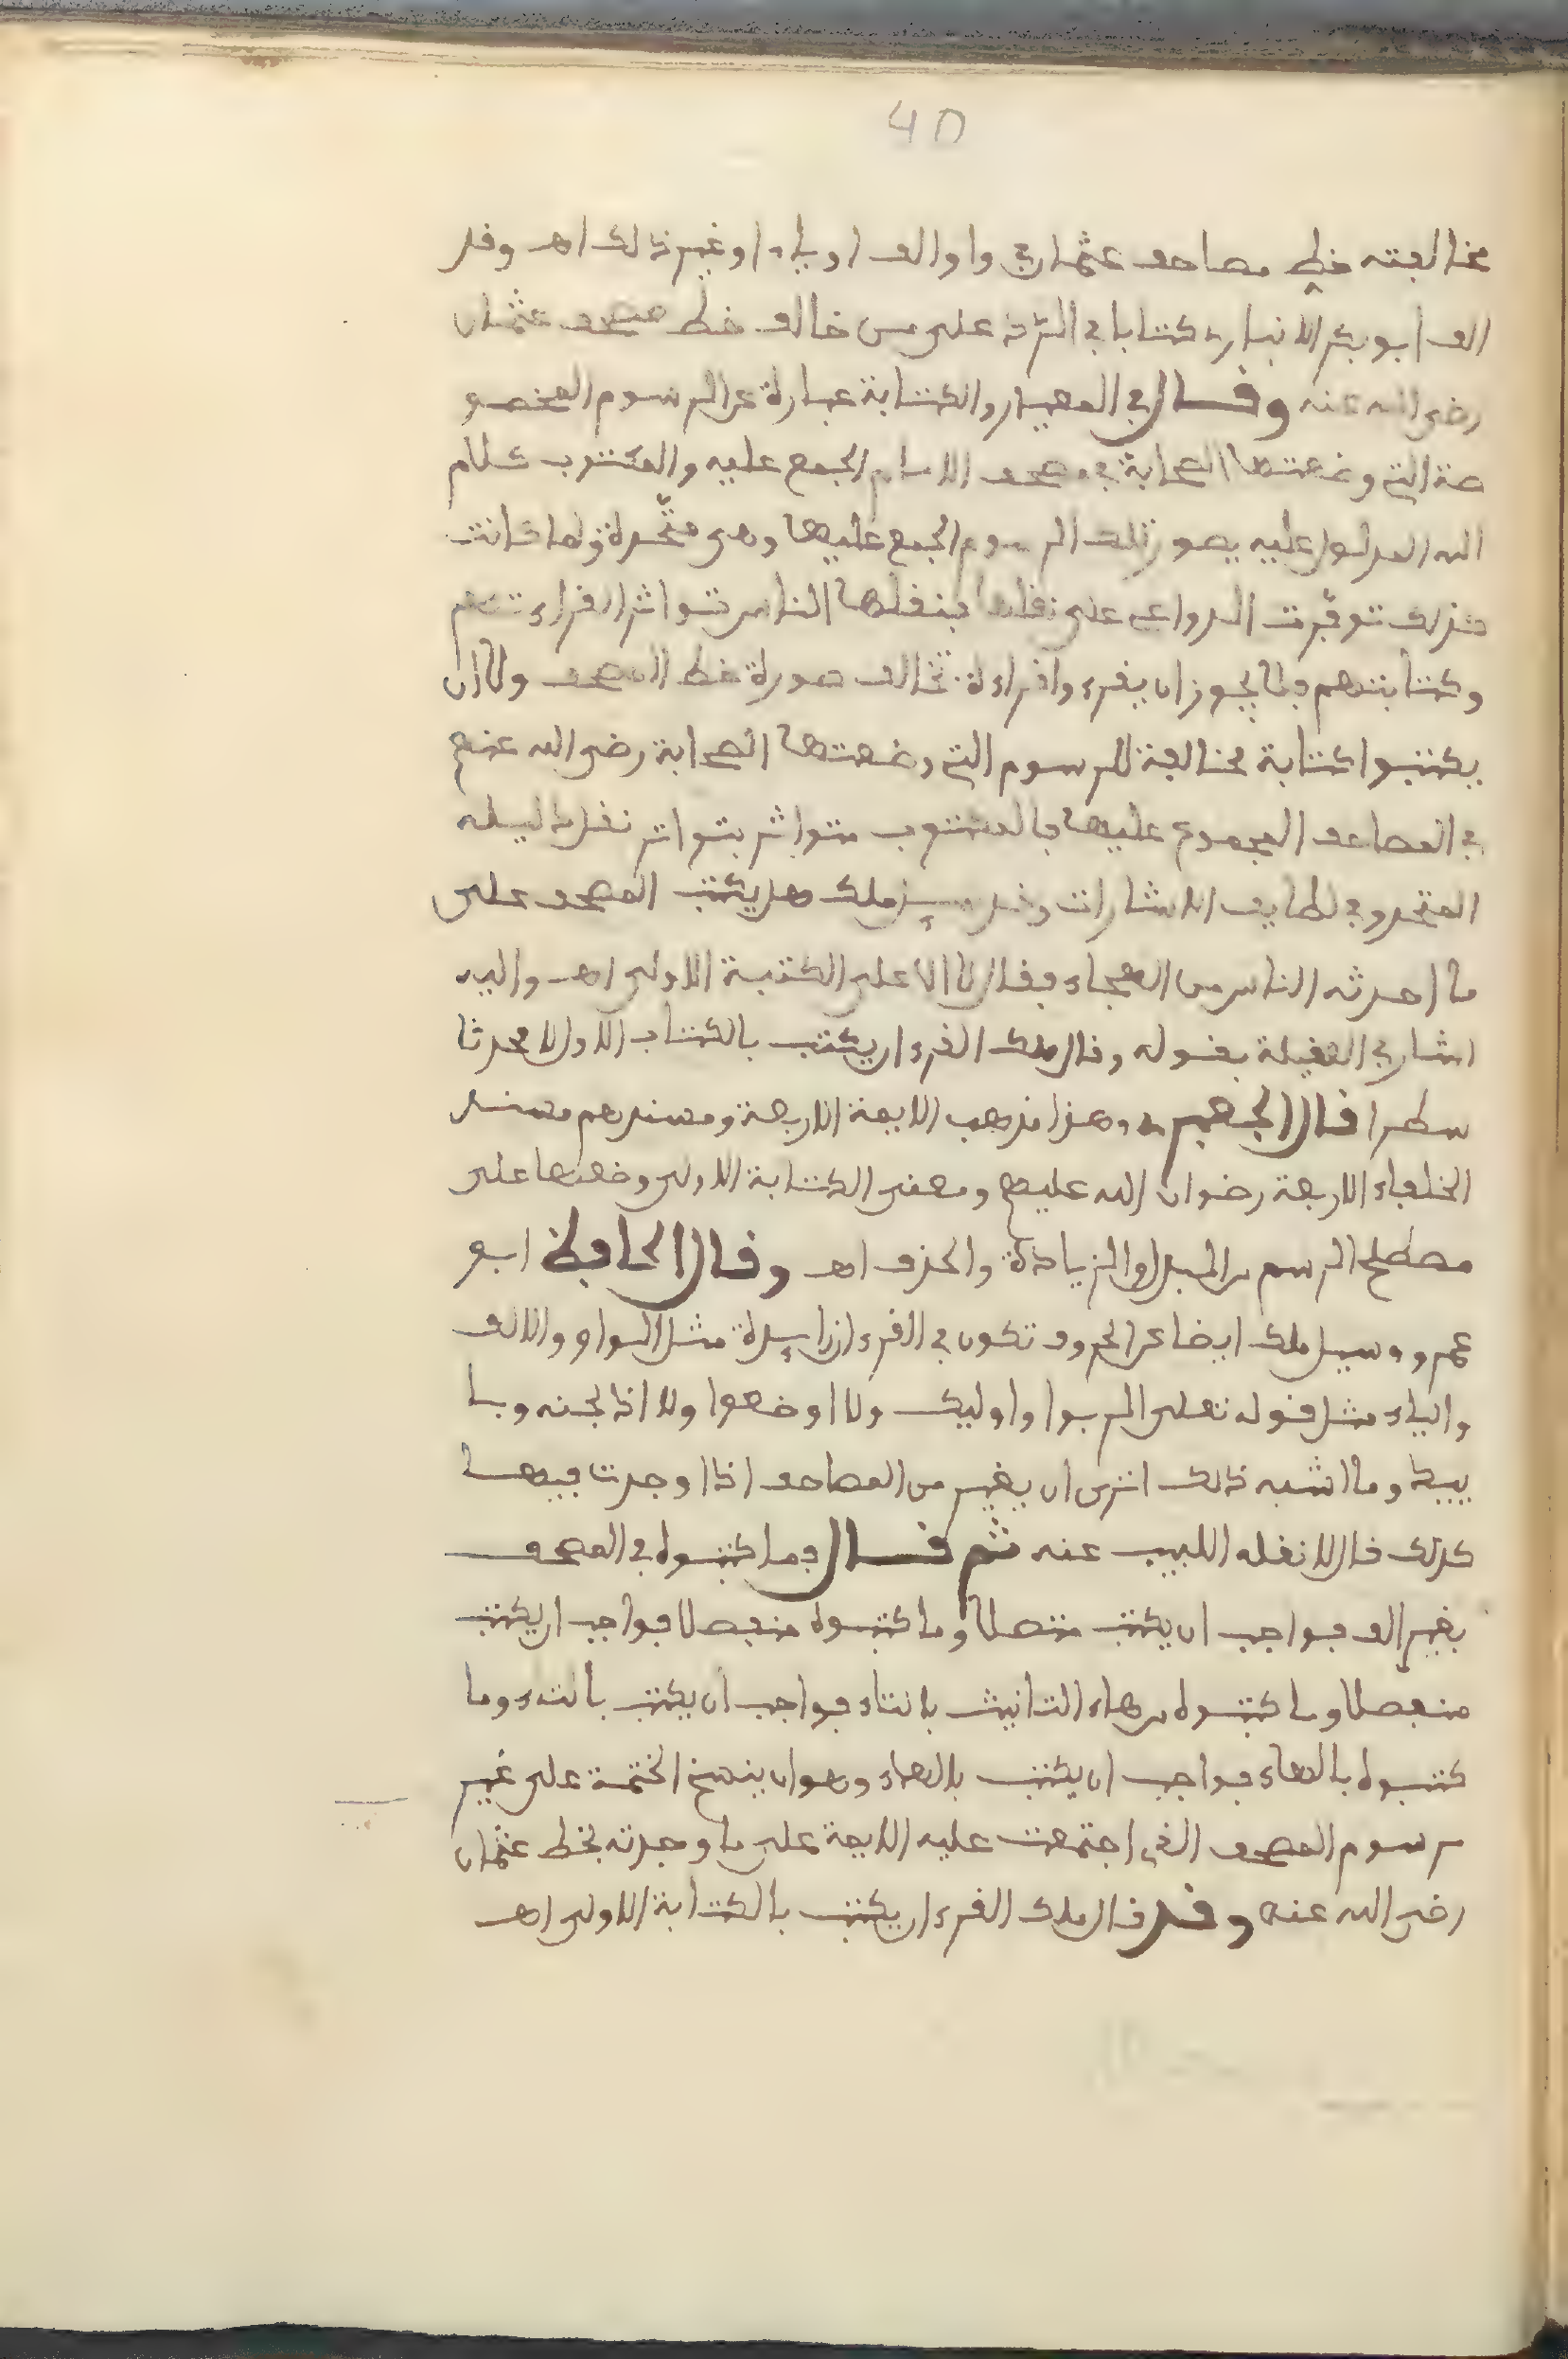 40
مخالفته خط مصاحف عثمان في واو او الف او ياء او غير ذالك اهـ وقد
الف ابو بكر الانباري كتابا في الرد على من خالف خط مصحف عثمان
رضى الله عنه وقال في المعيار والكتابة عبارة عن الرسوم المخصو
صة التي وضعتها الصحابة في مصحف الامام المجمع عليه والمكتوب كلام
الله المدلول عليه بصور تلك الرسوم المجمع عليها وهى متحدة ولما كانت
كذلك توفرت الدواعى على نقلها فنقلها الناس تواتر القراءتهم
وكتابتهم فلا يجوز ان يقرءوا قراءة تخالف صورة خط المصحف ولا ان
يكتبوا كتابة مخالفة للرسوم التي وضعتها الصحابة رضى الله عنهم
في المصاحف المجموع عليها فالمكتوب متواتر بتواتر نقل دليله
المتحد وفي لطايف الاشارات وقد سيل ملك هل يكتب المصحف على
ما احدثه الناس من الهجاء فقال لا الا على الكتبة الاولى اهـ واليه
اشار في العقيلة بقوله وقال ملك القرءان يكتب بالكتاب الاول لا محدثا
سطرا قال الجعبرى وهذا مذهب الايمة الاربعة ومسندهم مستند
الخلفاء الاربعة رضوان الله عليهم ومعنى الكتابة الاولى وضعها على
مصطلح الرسم من البدل والزيادة والحذف اهـ وقال الحافظ ابو
عمرو وسيل ملك ايضا عن الحروف تكون في القرءان زايدة مثل الواو والالف
والياء مثل قوله تعلى الربوا واوليك ولا اوضعوا ولا اذبحنه وبا
ييد وما اشبه ذالك اترى ان يغير من المصاحف اذا وجدت فيها
كذلك قال لا نقله اللبيب عنه ثم قال فما كتبوه في المصحف
بغير الف فواجب ان يكتب متصلا وما كتبوه منفصلا فواجب ان يكتب
منفصلا وما كتبوه من هاء التانيث بالتاء فواجب ان يكتب بالتاء وما
كتبوه بالهاء فواجب ان يكتب بالهاء وهو ان ينسخ الختمة على غير
مرسوم المصحف الذى اجتمعت عليه الايمة على ما وجدته بخط عثمان
رضى الله عنه وقد قال ملك القرءان يكتب بالكتابة الاولى اهـ